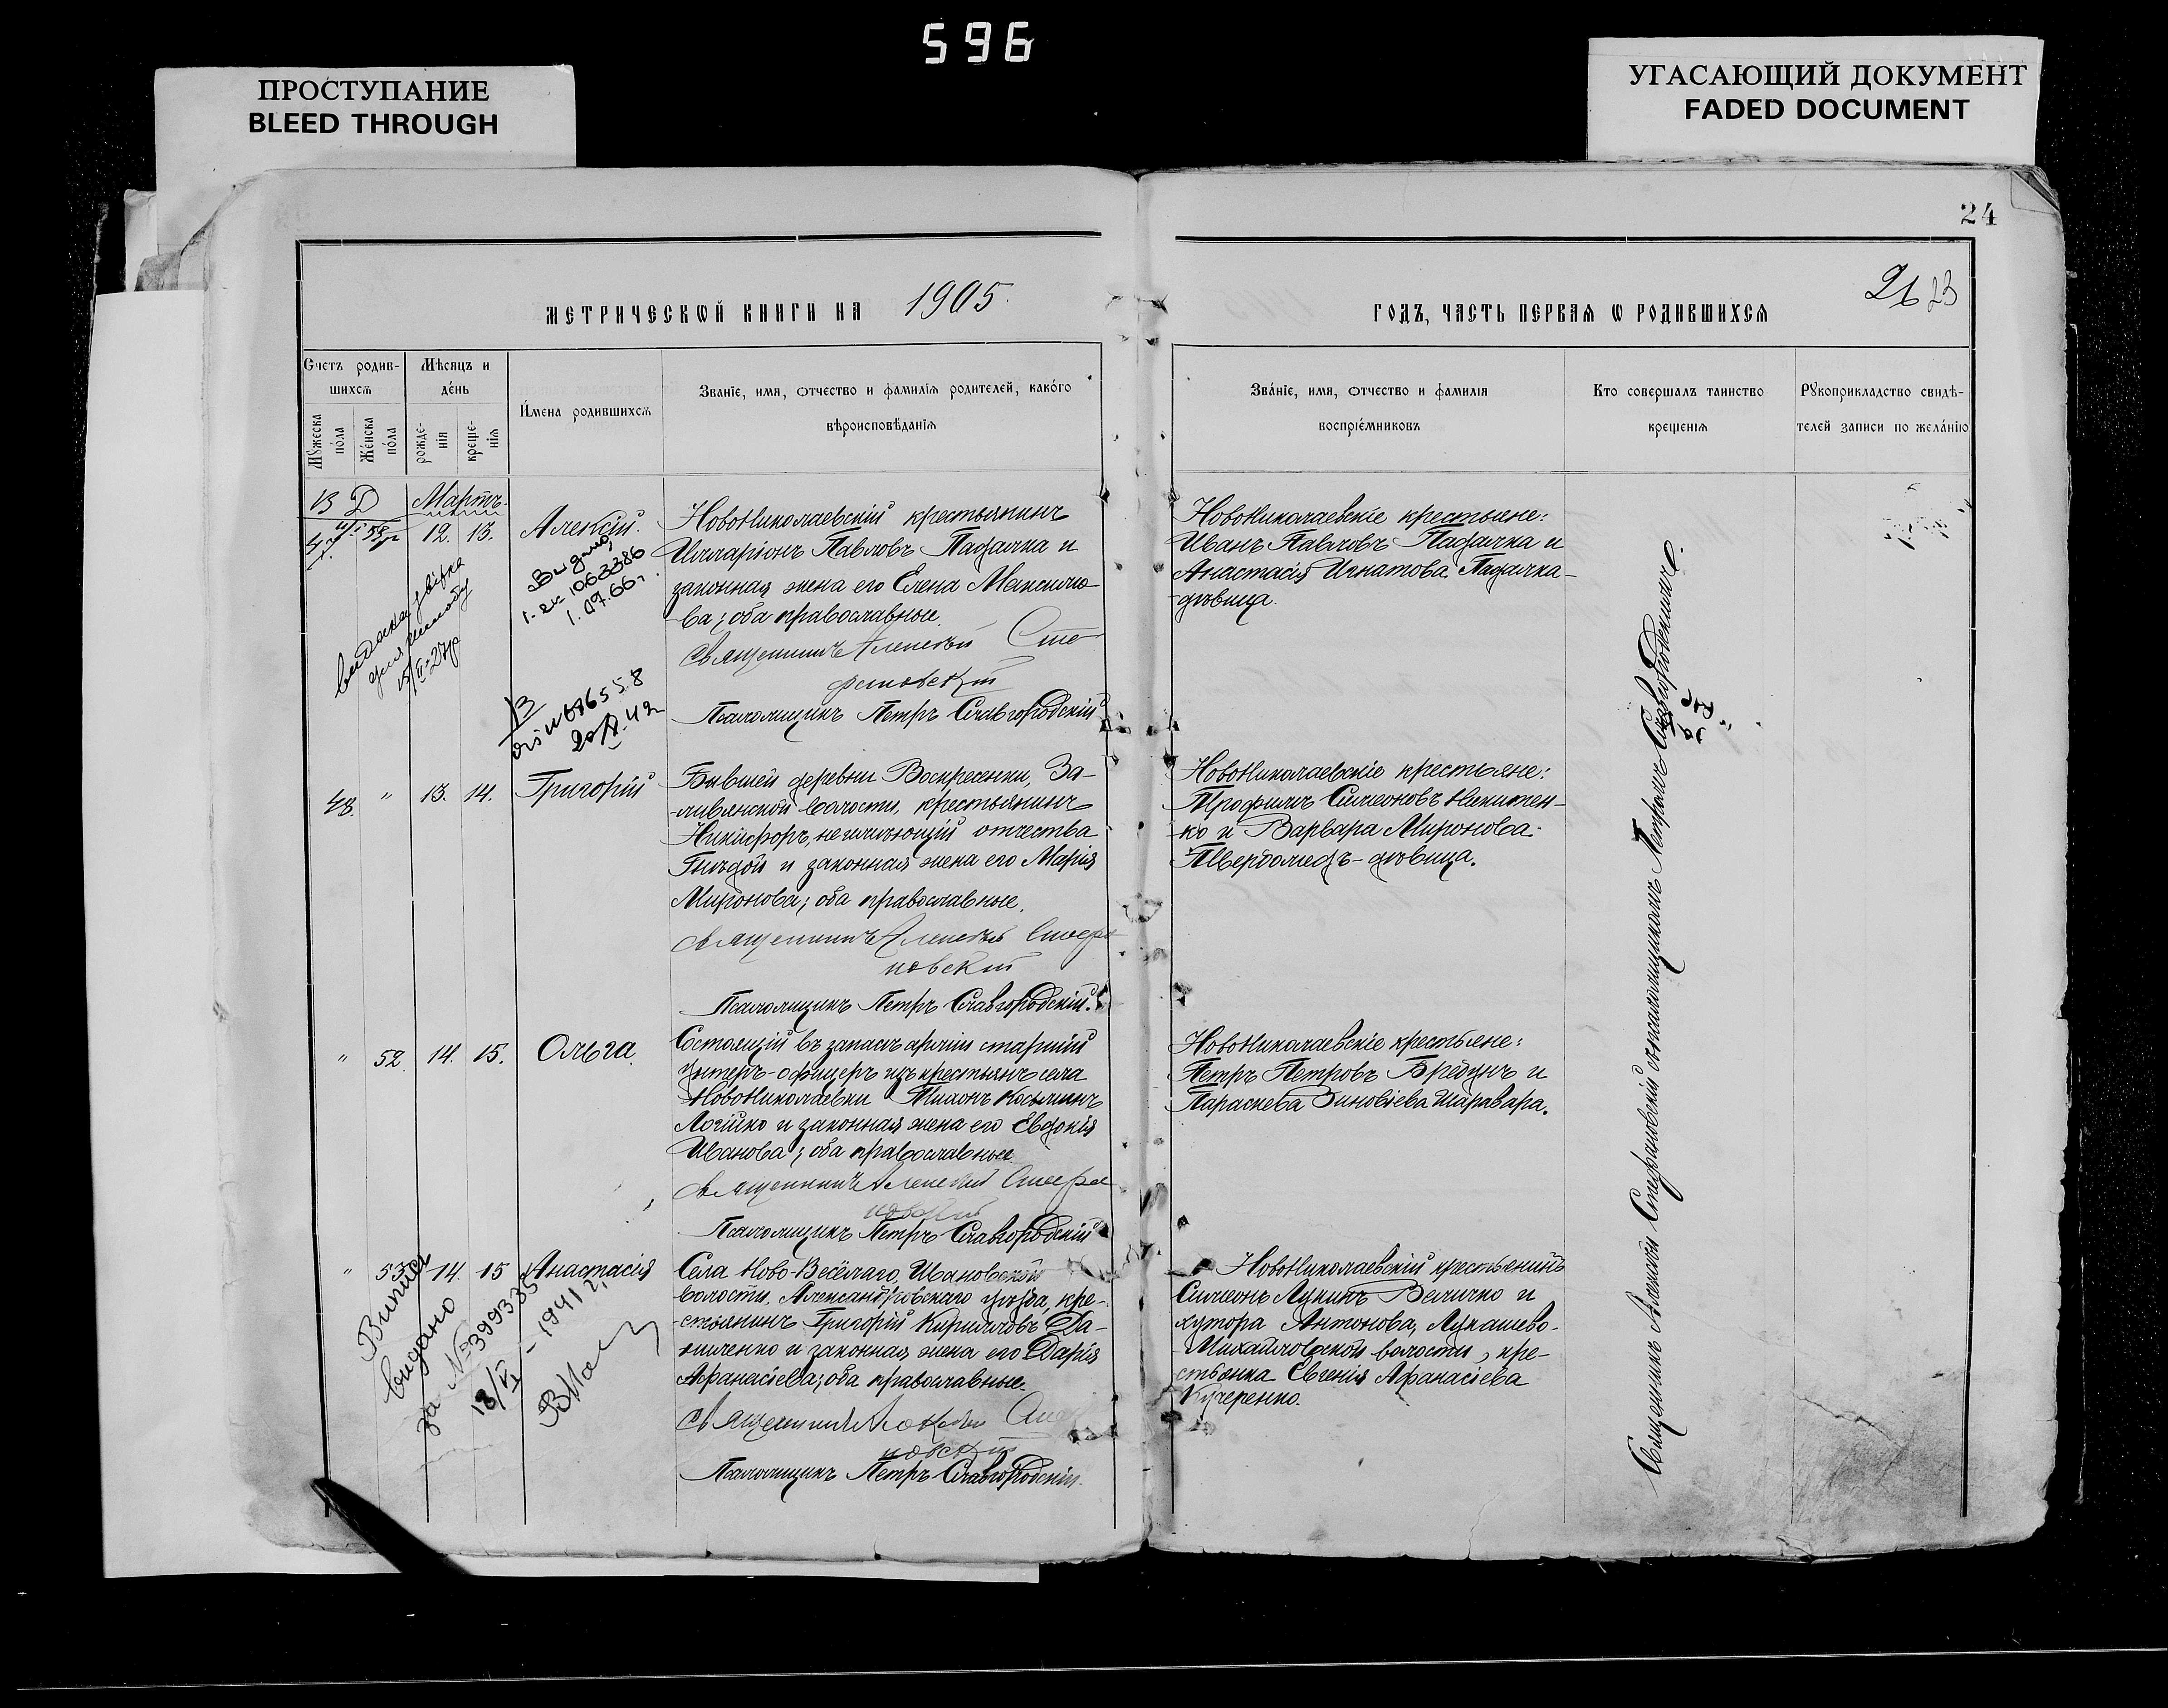 596
ПРОСТУПАНИЕ
BLEED THROUGH
УГАСАЮЩИЙ ДОКУМЕНТ
FADED DOCUMENT
24
26 23
МЕТРИЧЕСКОЙ КНИГИ НА 1905
ГОДЪ, ЧАСТЬ ПЕРВАЯ Ѡ РОДИВШИХСЯ
Счетъ родив-
шихся
Мужеска пола
Женска пола
Мѣсяцъ и
день
рожде-
нія
креще-
нія
Имена родившихся
Званіе, имя, отчество и фамилія родителей, какого
вѣроисповѣданія
Званіе, имя, отчество и фамилія
воспріемниковъ
Кто совершалъ таинство
крещенія
Рукоприкладство свидѣ-
телей записи по желанію
Мартъ.
47 12. 13. Алексій.
Новониколаевскій крестьянинъ
Илларіонъ Павловъ Падалка и
законная жена его Елена Максимо-
ва; оба православные.
Священникъ Алексѣй Сте-
фановскій
Псаломщикъ Петръ Славгородскій
Новониколаевскіе крестьяне:
Иванъ Павловъ Падалка и
Анастасія Игнатова Падалка-
дѣвица.
Видано
1063386
48. " 13. 14. Григорій
Бывшей деревни Воскресенки,
волости, крестьянинъ
Никифоръ, неимѣющій отчества
Гнѣдой и законная жена его Марія
Миронова; оба православные.
Священникъ Алексѣй Стефа
новскій
Псаломщикъ Петръ Славгородскій.
Новониколаевскіе крестьяне:
Трофимъ Симеоновъ Никитен-
ко и Варвара Миронова
Твердомедъ-дѣвица.
" 52 14. 15. Ольга.
Состоящій въ запасѣ арміи старшій
унтеръ-офицеръ изъ крестьянъ села
Новониколаевки Тихонъ Косьминъ
Логійко и законная жена его Евдокія
Иванова; оба православные
Священникъ Алексѣй Стефа
новскій
Псаломщикъ Петръ Славгородскій
Новониколаевскіе крестьяне:
Петръ Петровъ Бредунъ и
Параскева Зиновіева Шаравара.
" 53 14. 15 Анастасія
Села Ново-Весёлаго, Ивановской
волости, Александровскаго уѣзда, кре-
стьянинъ Григорій Кирилловъ Да-
ниленко и законная жена его Дарія
Афанасіева; оба православные.
Священникъ Алексѣй Стеф
новскій
Псаломщикъ Петръ Славгородскій.
Новониколаевскій крестьянинъ
Симеонъ Лукинъ Величко и
хутора Антонова, Лукашево-
Михайловской волости, кре-
стьянка Евгенія Афанасіева
Кучеренко.
видано
за № 399335
18/VI - 1941 р.
Священникъ Алексѣй Стефановскій съ псаломщикомъ Петромъ Славгородскимъ.